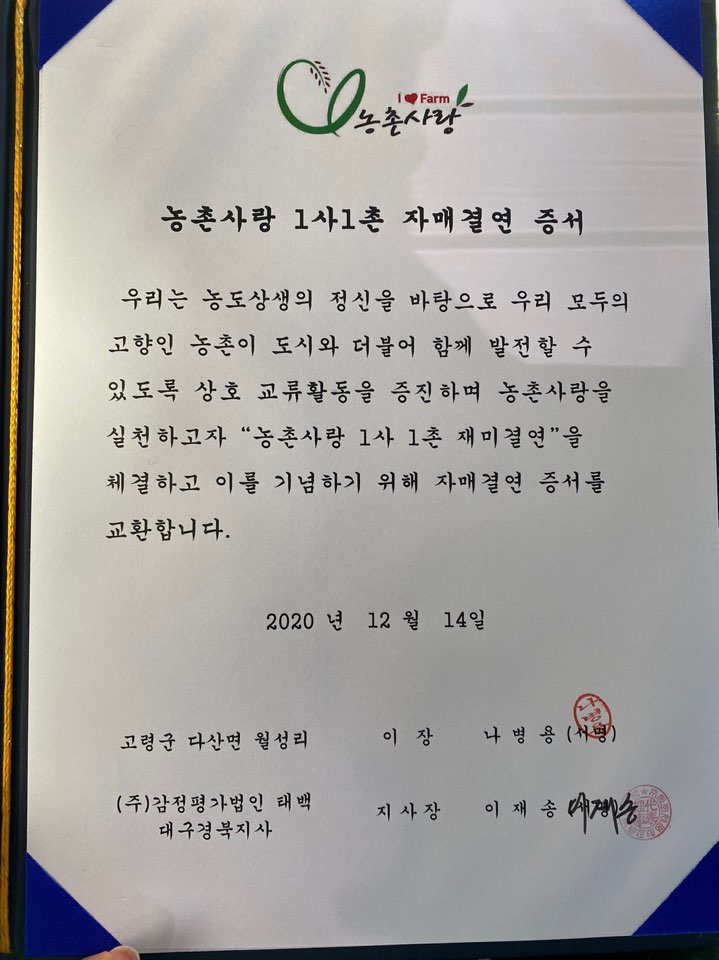 I ♥ Farm
농촌사랑
농촌사랑 1사1촌 자매결연 증서
우리는 농도상생의 정신을 바탕으로 우리 모두의
고향인 농촌이 도시와 더불어 함께 발전할 수
있도록 상호 교류활동을 증진하며 농촌사랑을
실천하고자 “농촌사랑 1사 1촌 재미결연”을
체결하고 이를 기념하기 위해 자매결연 증서를
교환합니다.
2020 년 12 월 14일
고령군 다산면 월성리 이 장 나 병 용 (서명)
(주)감정평가법인 태백 지사장 이 재 송
대구경북지사